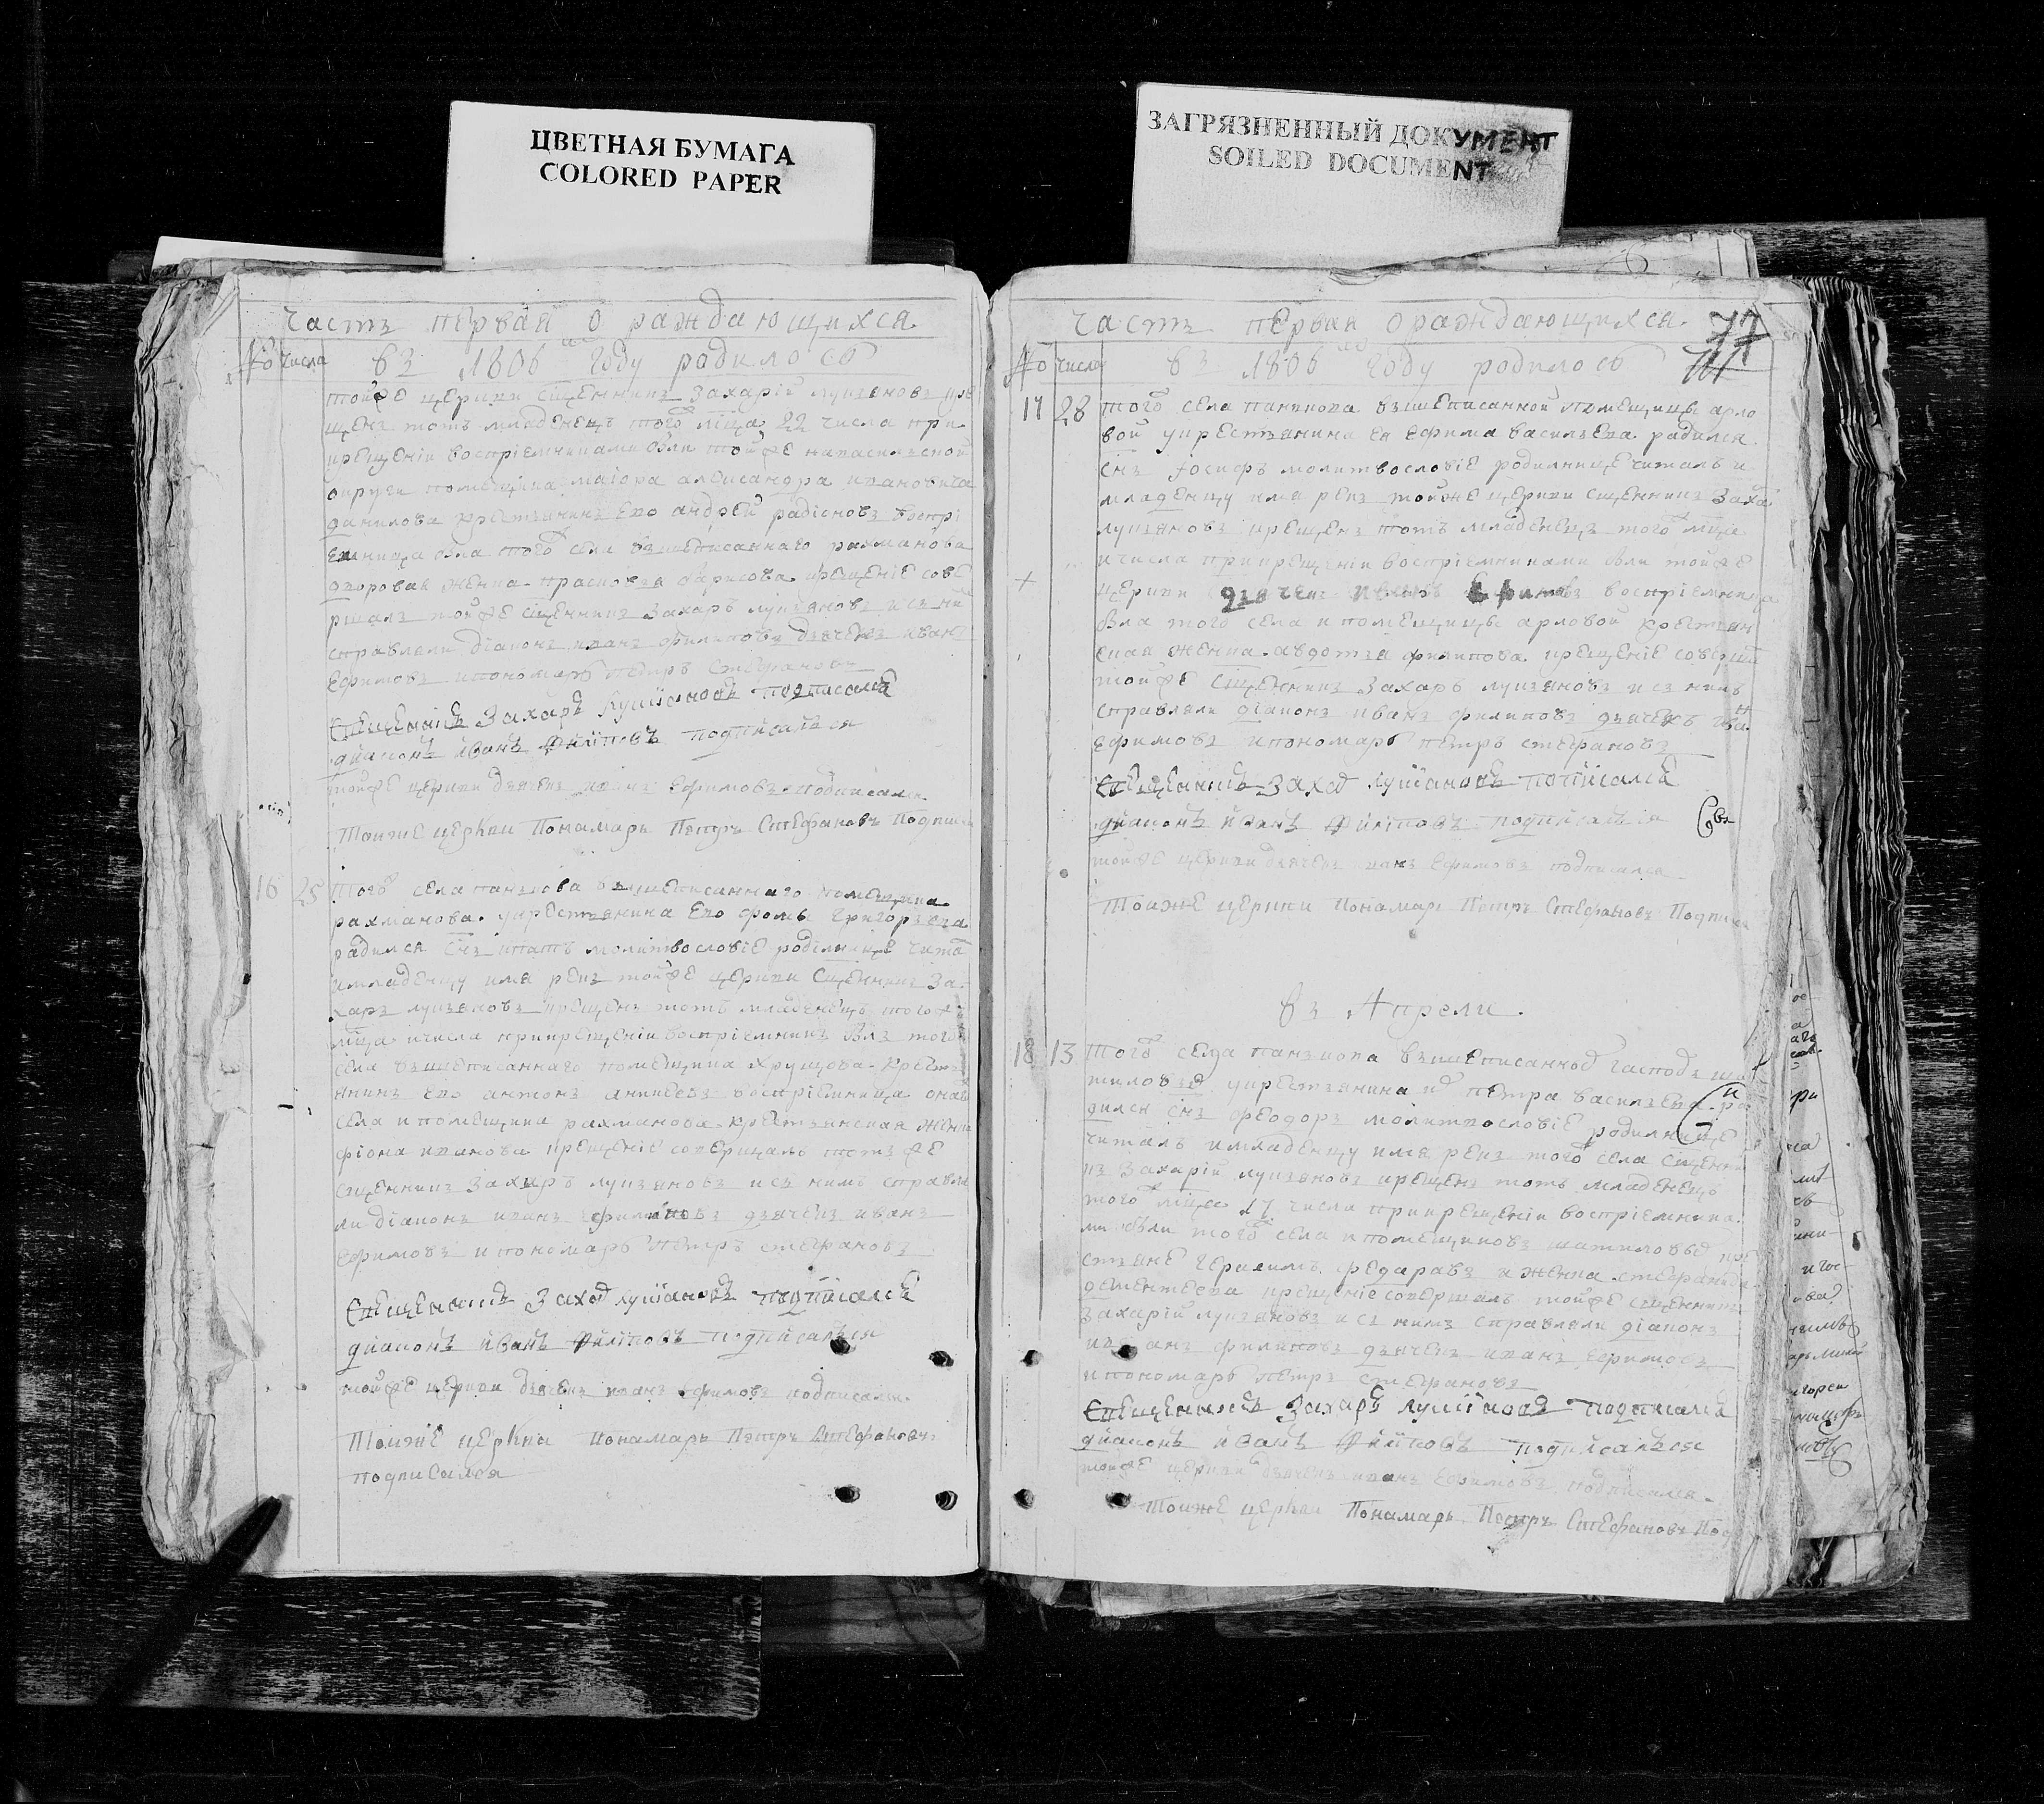 ЦВЕТНАЯ БУМАГА
COLORED PAPER
ЗАГРЯЗНЕННЫЙ ДОКУМЕНТ
SOILED DOCUMENT
часть первая о раждающихся
№ числа въ 1806 году радилось
тойже церкви сщенникъ Захарій лукъяновъ кре
щенъ тотъ младенецъ того мца 22 числа при
крещеніи воспріемниками были тойже
округи помещика маіора александра ивановича
данилова крестьянинъ ево андрей радіоновъ воспрі
емница была того села вышеписаннаго рахманова
дворовая женка прасковья барисова крещеніе сове
ршалъ тойже сщенникъ Захаръ лукъяновъ и съ ни
справляли діаконъ иванъ филиповъ дьячекъ иванъ
Ефимовъ и пономарь петръ Стефановъ
Священникъ Захаръ лукияновъ подписался
диаконъ иванъ Филиповъ подписался
тойже церкви дьячекъ иванъ Ефимовъ подписался
Тоиже церкви Понамарь Петръ Стефановъ Подписа
16 25 Того села панькова вышеписаннаго помещика
рахманова у крестьянина ево фомы Григорьева
радился снъ молитвословіе родільнице чита
имладенцу имя рекъ тойже церкви сщенникъ За
харъ лукъяновъ крещенъ тотъ младенецъ тогож
мца ичисла прикрещеніи воспріемникъ былъ того
села вышеписаннаго помещика хрущова крест
янинъ ево антонъ воспріемница онаго
села и помещика рахманова крестьянская женка
иванова крещеніе совершалъ тотъже
сщенникъ Захаръ лукъяновъ исъ нимъ справля
ли діаконъ иванъ филиповъ дьячекъ иванъ
Ефимовъ и пономарь Петръ стефановъ
Священникъ Захар лукіановъ подписался
диаконъ иванъ Филиповъ подписался
тойже церкви дьячекъ иванъ Ефимовъ подписался
Тоиже церкви Понамарь Петръ Стефановъ
подписался
часть первая о раждающихся
77
№ число въ 1806 году родилось
17 28 того села панькова вышеписанной помещицы арло
вой укрестьянина ея ефима васильева радился
снъ Іосифъ молитвословіе родилнице читалъ и
младенцу имя рекъ тойже церкви сщенникъ Заха
лукъяновъ крещенъ тотъ младенецъ тогож мца
ичисла прикрещеніи воспріемниками были тойже
церкви дьячекъ иванъ Ефимовъ воспріемница
была того села и помещицы арловой крестьян
ская женка авдотья филипова крещеніе соверша
тойже сщенникъ Захаръ лукъяновъ исъ нимъ
справляли діаконъ иванъ филиповъ дьячекъ иван
ефимовъ ипономарь петръ стефановъ
Священникъ Захар лукиановъ подписался
диаконъ иванъ Филиповъ подписался
тойже церкви дьячекъ иванъ Ефимовъ подписался
Тоиже церкви Понамарь Петръ Стефановъ Подписа
въ Апрели
18 13 того села панькова вышеписанных господъ ша
тиловых укрестьянина их петра васильева ра
дился снъ феодоръ молитвословіе родилнице
читалъ имладенцу имя рекъ того села сщенни
къ Захарій лукъяновъ крещенъ тотъ младенецъ
того мца 17 числа прикрещеніи воспріемника
ми были того села и помещиковъ шатиловых кре
стьяне федаравъ и женка стефанида
дементеева крещеніе совершалъ тойже сщенникъ
Захарій лукъяновъ и съ нимъ справляли діаконъ
иванъ филиповъ дьячекъ иванъ ефимовъ
и пономарь петръ стефановъ
Священникъ Захаръ лукиановъ подписался
диаконъ иванъ Филиповъ подписался
тойже церкви дьячекъ иванъ Ефимовъ подписался
Тоиже церкви Понамарь Петръ Стефановъ Под